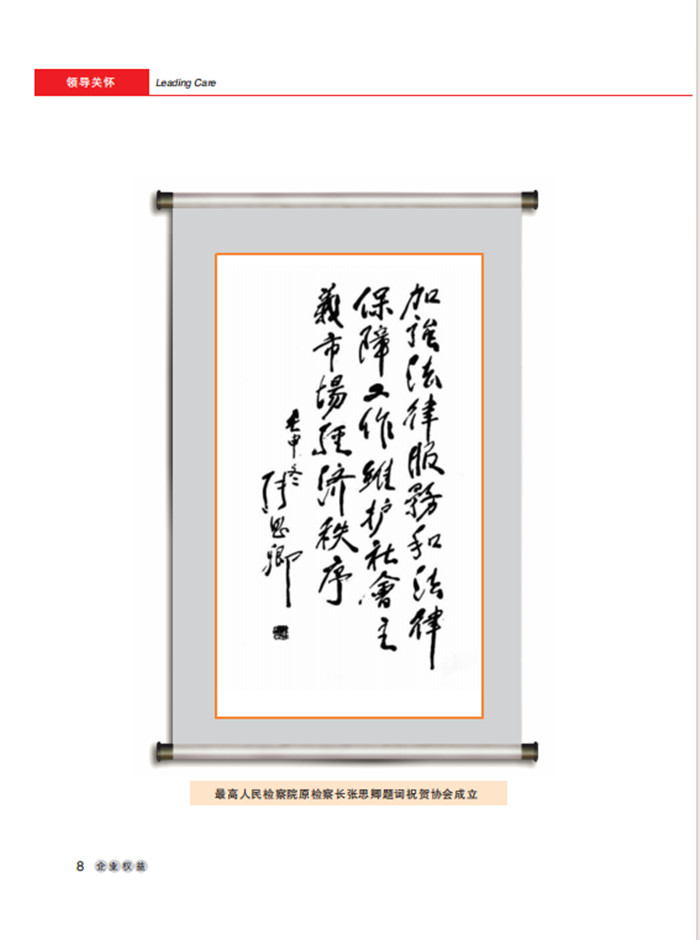 领导关怀
Leading Care
加强法律服務和法律
保障工作維护社會主
義市場經济秩序
壬申冬
张思卿
最高人民检察院原检察长张思卿题词祝贺协会成立
8 企业权益